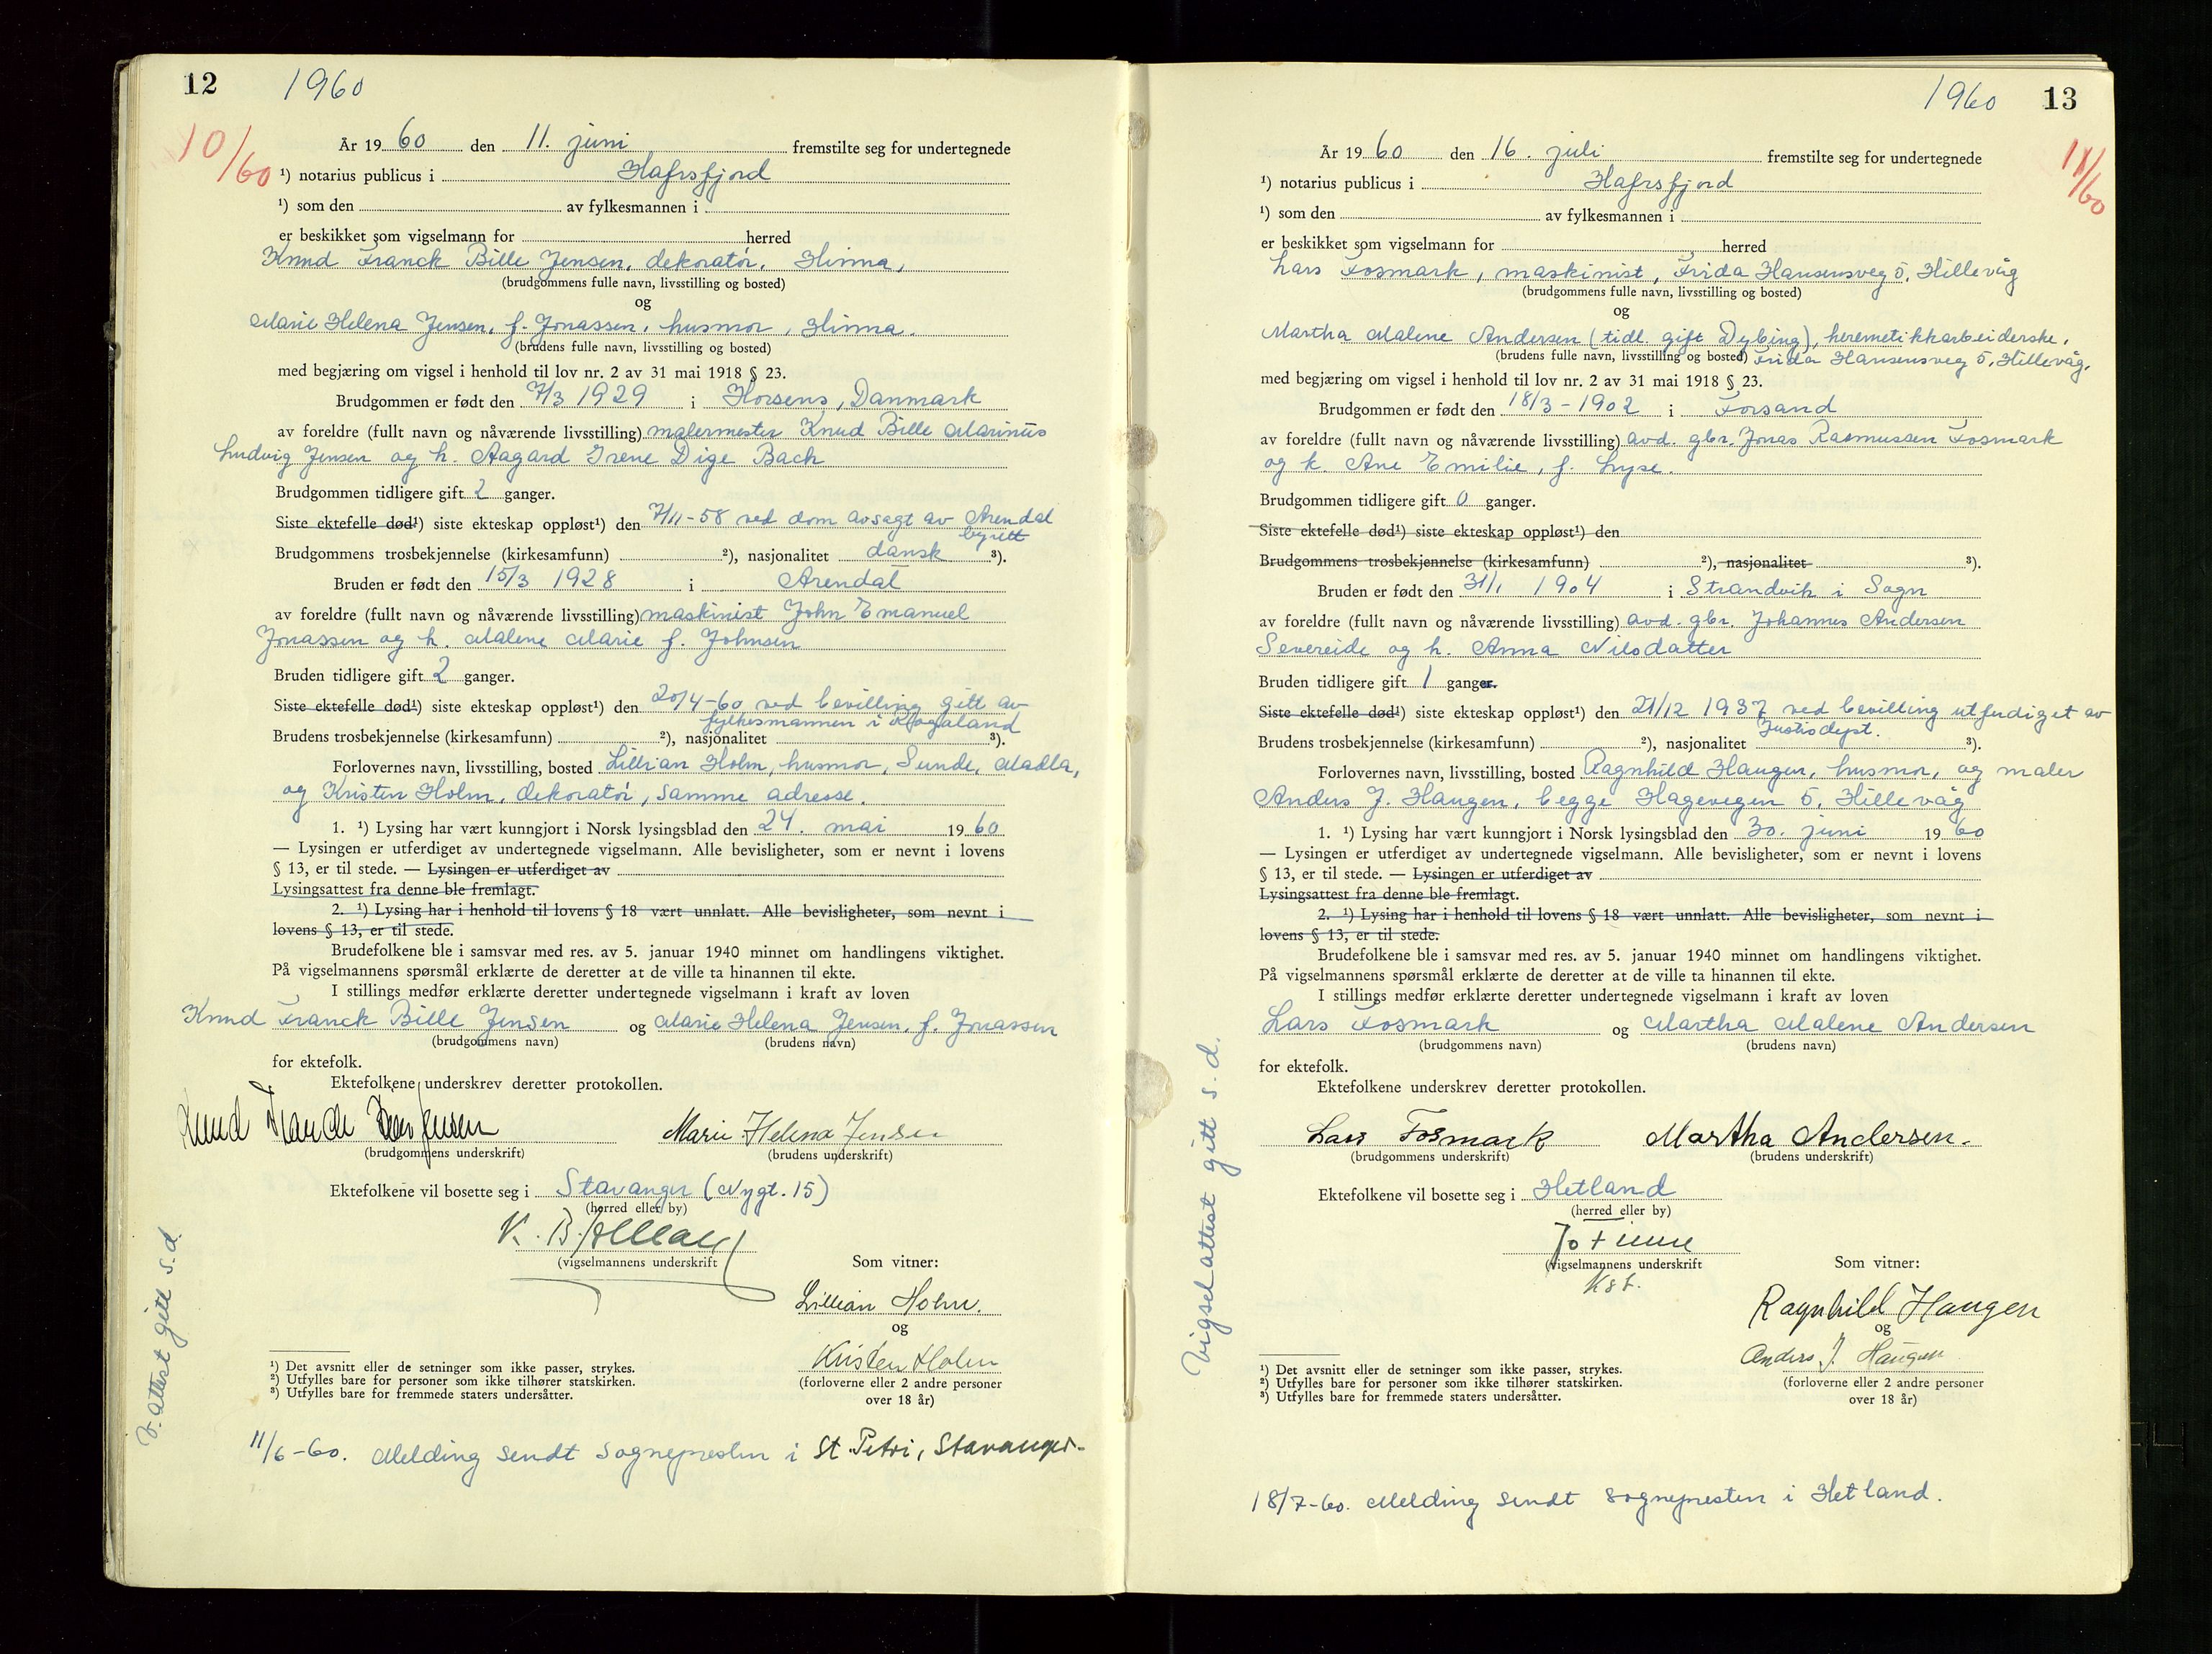 12 1960
10/60
År 19 60 den 11. juni fremstilte seg for undertegnede
¹) notarius publicus i Hafrsfjord
¹) som den av fylkesmannen i
er beskikket som vigselmann for herred
Knud Franck Bille Jensen, dekoratør, Hinna,
(brudgommens fulle navn, livsstilling og bosted)
og
Marie Helena Jensen, f. Jonassen, husmor, Hinna.
(brudens fulle navn, livsstilling og bosted)
med begjæring om vigsel i henhold til lov nr. 2 av 31 mai 1918 § 23.
Brudgommen er født den 7/3 1929 i Horsens, Danmark
av foreldre (fullt navn og nåværende livsstilling) malermester Knud Bille Marinus
Ludvig Jensen og h. Aagard Irene Dige Bach
Brudgommen tidligere gift 2 ganger.
Siste ektefelle død¹) siste ekteskap oppløst¹) den 7/11-58 ved dom avsagt av Arendal
byrett
Brudgommens trosbekjennelse (kirkesamfunn) ²), nasjonalitet dansk ³).
Bruden er født den 15/3 1928 i Arendal
av foreldre (fullt navn og nåværende livsstilling) maskinist John Emanuel
Jonassen og h. Malene Marie f. Johnsen
Bruden tidligere gift 2 ganger.
Siste ektefelle død¹) siste ekteskap oppløst¹) den 20/4-60 ved bevilling gitt av
fylkesmannen i Rogaland
Brudens trosbekjennelse (kirkesamfunn) ²), nasjonalitet ³).
Forlovernes navn, livsstilling, bosted Lillian Holm, husmor, Sunde, Madla,
og Kristen Holm, dekoratør, samme adresse.
1. ¹) Lysing har vært kunngjort i Norsk lysingsblad den 24. mai 19 60
— Lysingen er utferdiget av undertegnede vigselmann. Alle bevisligheter, som er nevnt i lovens
§ 13, er til stede. — Lysingen er utferdiget av
Lysingsattest fra denne ble fremlagt.
2. ¹) Lysing har i henhold til lovens § 18 vært unnlatt. Alle bevisligheter, som nevnt i
lovens § 13, er til stede.
Brudefolkene ble i samsvar med res. av 5. januar 1940 minnet om handlingens viktighet.
På vigselmannens spørsmål erklærte de deretter at de ville ta hinannen til ekte.
I stillings medfør erklærte deretter undertegnede vigselmann i kraft av loven
Knud Franck Bille Jensen og Marie Helena Jensen, f. Jonassen
(brudgommens navn) (brudens navn)
for ektefolk.
Ektefolkene underskrev deretter protokollen.
Knud Franck Jensen Marie Helena Jensen
(brudgommens underskrift) (brudens underskrift)
Ektefolkene vil bosette seg i Stavanger (Nygt. 15)
(herred eller by)
K. B.
(vigselmannens underskrift
Som vitner:
Lillian Holm.
og
Kristen Holm
(forloverne eller 2 andre personer
over 18 år)
¹) Det avsnitt eller de setninger som ikke passer, strykes.
²) Utfylles bare for personer som ikke tilhører statskirken.
³) Utfylles bare for fremmede staters undersåtter.
V. attest gitt s.d.
11/6-60. Melding sendt sognepresten i St Petri, Stavanger.
1960 13
11/60
År 19 60 den 16. juli fremstilte seg for undertegnede
¹) notarius publicus i Hafrsfjord
¹) som den av fylkesmannen i
er beskikket som vigselmann for herred
Lars Fosmark, maskinist, Frida Hansensveg 5, Hillevåg
(brudgommens fulle navn, livsstilling og bosted)
og
Martha Malene Andersen (tidl. gift Dybing), heremetikkarbeiderske,
(brudens fulle navn, livsstilling og bosted) Frida Hansensveg 5, Hillevåg,
med begjæring om vigsel i henhold til lov nr. 2 av 31 mai 1918 § 23.
Brudgommen er født den 18/3-1902 i Forsand
av foreldre (fullt navn og nåværende livsstilling) avd. gbr. Jonas Rasmussen Fosmark
og k. Ane Emilie, f. Lyse.
Brudgommen tidligere gift 0 ganger.
Siste ektefelle død¹) siste ekteskap oppløst¹) den
Brudgommens trosbekjennelse (kirkesamfunn) ²), nasjonalitet ³).
Bruden er født den 31/1 1904 i Strandvik i Sogn
av foreldre (fullt navn og nåværende livsstilling) avd. gbr. Johannes Andersen
Severeide og h. Anna Nilsdatter
Bruden tidligere gift 1 ganger.
Siste ektefelle død¹) siste ekteskap oppløst¹) den 21/12 1937 ved bevilling utferdiget av
Justisdept.
Brudens trosbekjennelse (kirkesamfunn) ²), nasjonalitet ³).
Forlovernes navn, livsstilling, bosted Ragnhild Haugen, husmor, og maler
Anders J. Haugen, begge Hagevegen 5, Hillevåg
1. ¹) Lysing har vært kunngjort i Norsk lysingsblad den 30. juni 19 60
— Lysingen er utferdiget av undertegnede vigselmann. Alle bevisligheter, som er nevnt i lovens
§ 13, er til stede. — Lysingen er utferdiget av
Lysingsattest fra denne ble fremlagt.
2. ¹) Lysing har i henhold til lovens § 18 vært unnlatt. Alle bevisligheter, som nevnt i
lovens § 13, er til stede.
Brudefolkene ble i samsvar med res. av 5. januar 1940 minnet om handlingens viktighet.
På vigselmannens spørsmål erklærte de deretter at de ville ta hinannen til ekte.
I stillings medfør erklærte deretter undertegnede vigselmann i kraft av loven
Lars Fosmark og Martha Malene Andersen
(brudgommens navn) (brudens navn)
for ektefolk.
Ektefolkene underskrev deretter protokollen.
Lars Fosmark Martha Andersen.
(brudgommens underskrift) (brudens underskrift)
Ektefolkene vil bosette seg i Hetland
(herred eller by)
Jo
(vigselmannens underskrift
Kst.
Som vitner:
Ragnhild Haugen
og
Anders J. Haugen
(forloverne eller 2 andre personer
over 18 år)
¹) Det avsnitt eller de setninger som ikke passer, strykes.
²) Utfylles bare for personer som ikke tilhører statskirken.
³) Utfylles bare for fremmede staters undersåtter.
Vigselattest gitt s.d.
18/7-60. Melding sendt sognepresten i Hetland.